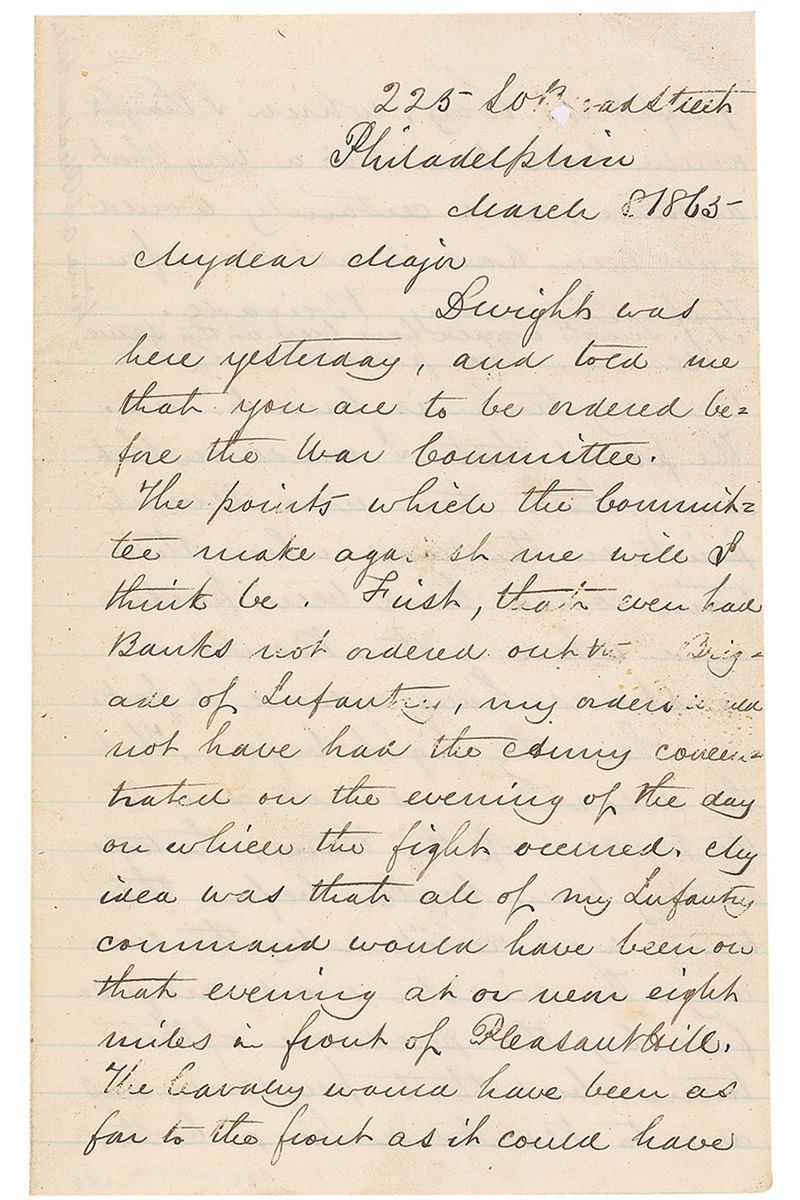 225 So Broad Street
Philadelphia
March 8 1865
My dear Major
Dwight was
here yesterday, and told me
that you are to be ordered be=
fore the War Committee.
The points which the Commit=
tee make against me will I
think be. First, that even had
Banks not ordered out the Brig=
ade of Infantry, my orders would
not have had the Army concen=
trated on the evening of the day
on which the fight occurred. My
idea was that all of my Infantry
command would have been on
that evening at or near eight
miles in front of Pleasant Hill.
The Cavalry would have been as
far to the front as it could have